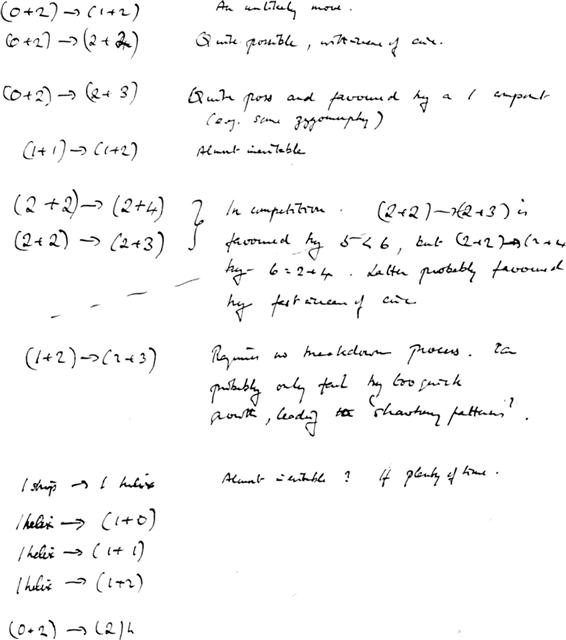 (0+2) → (1+2) An unlikely move.
(0+2) → (2+2) Quite possible, with increase of circ.
(0+2) → (2+3) Quite poss and favoured by a 1 component
(e.g. some zygomorphy)
(1+1) → (1+2) Almost inevitable
(2+2) → (2+4) } In competition. (2+2) → (2+3) is
(2+2) → (2+3) favoured by 5<6, but (2+2) → (2+4
by 6=2+4. Latter probably favoured
by fast increase of circ
(1+2) → (2+3) Requires no breakdown process. Can
probably only fail by too quick
growth, leading to "strawberry patterns".
1 strip → 1 helix Almost inevitable? If plenty of time.
1 helix → (1+0)
1 helix → (1+1)
1 helix → (1+2)
(0+2) → (2)